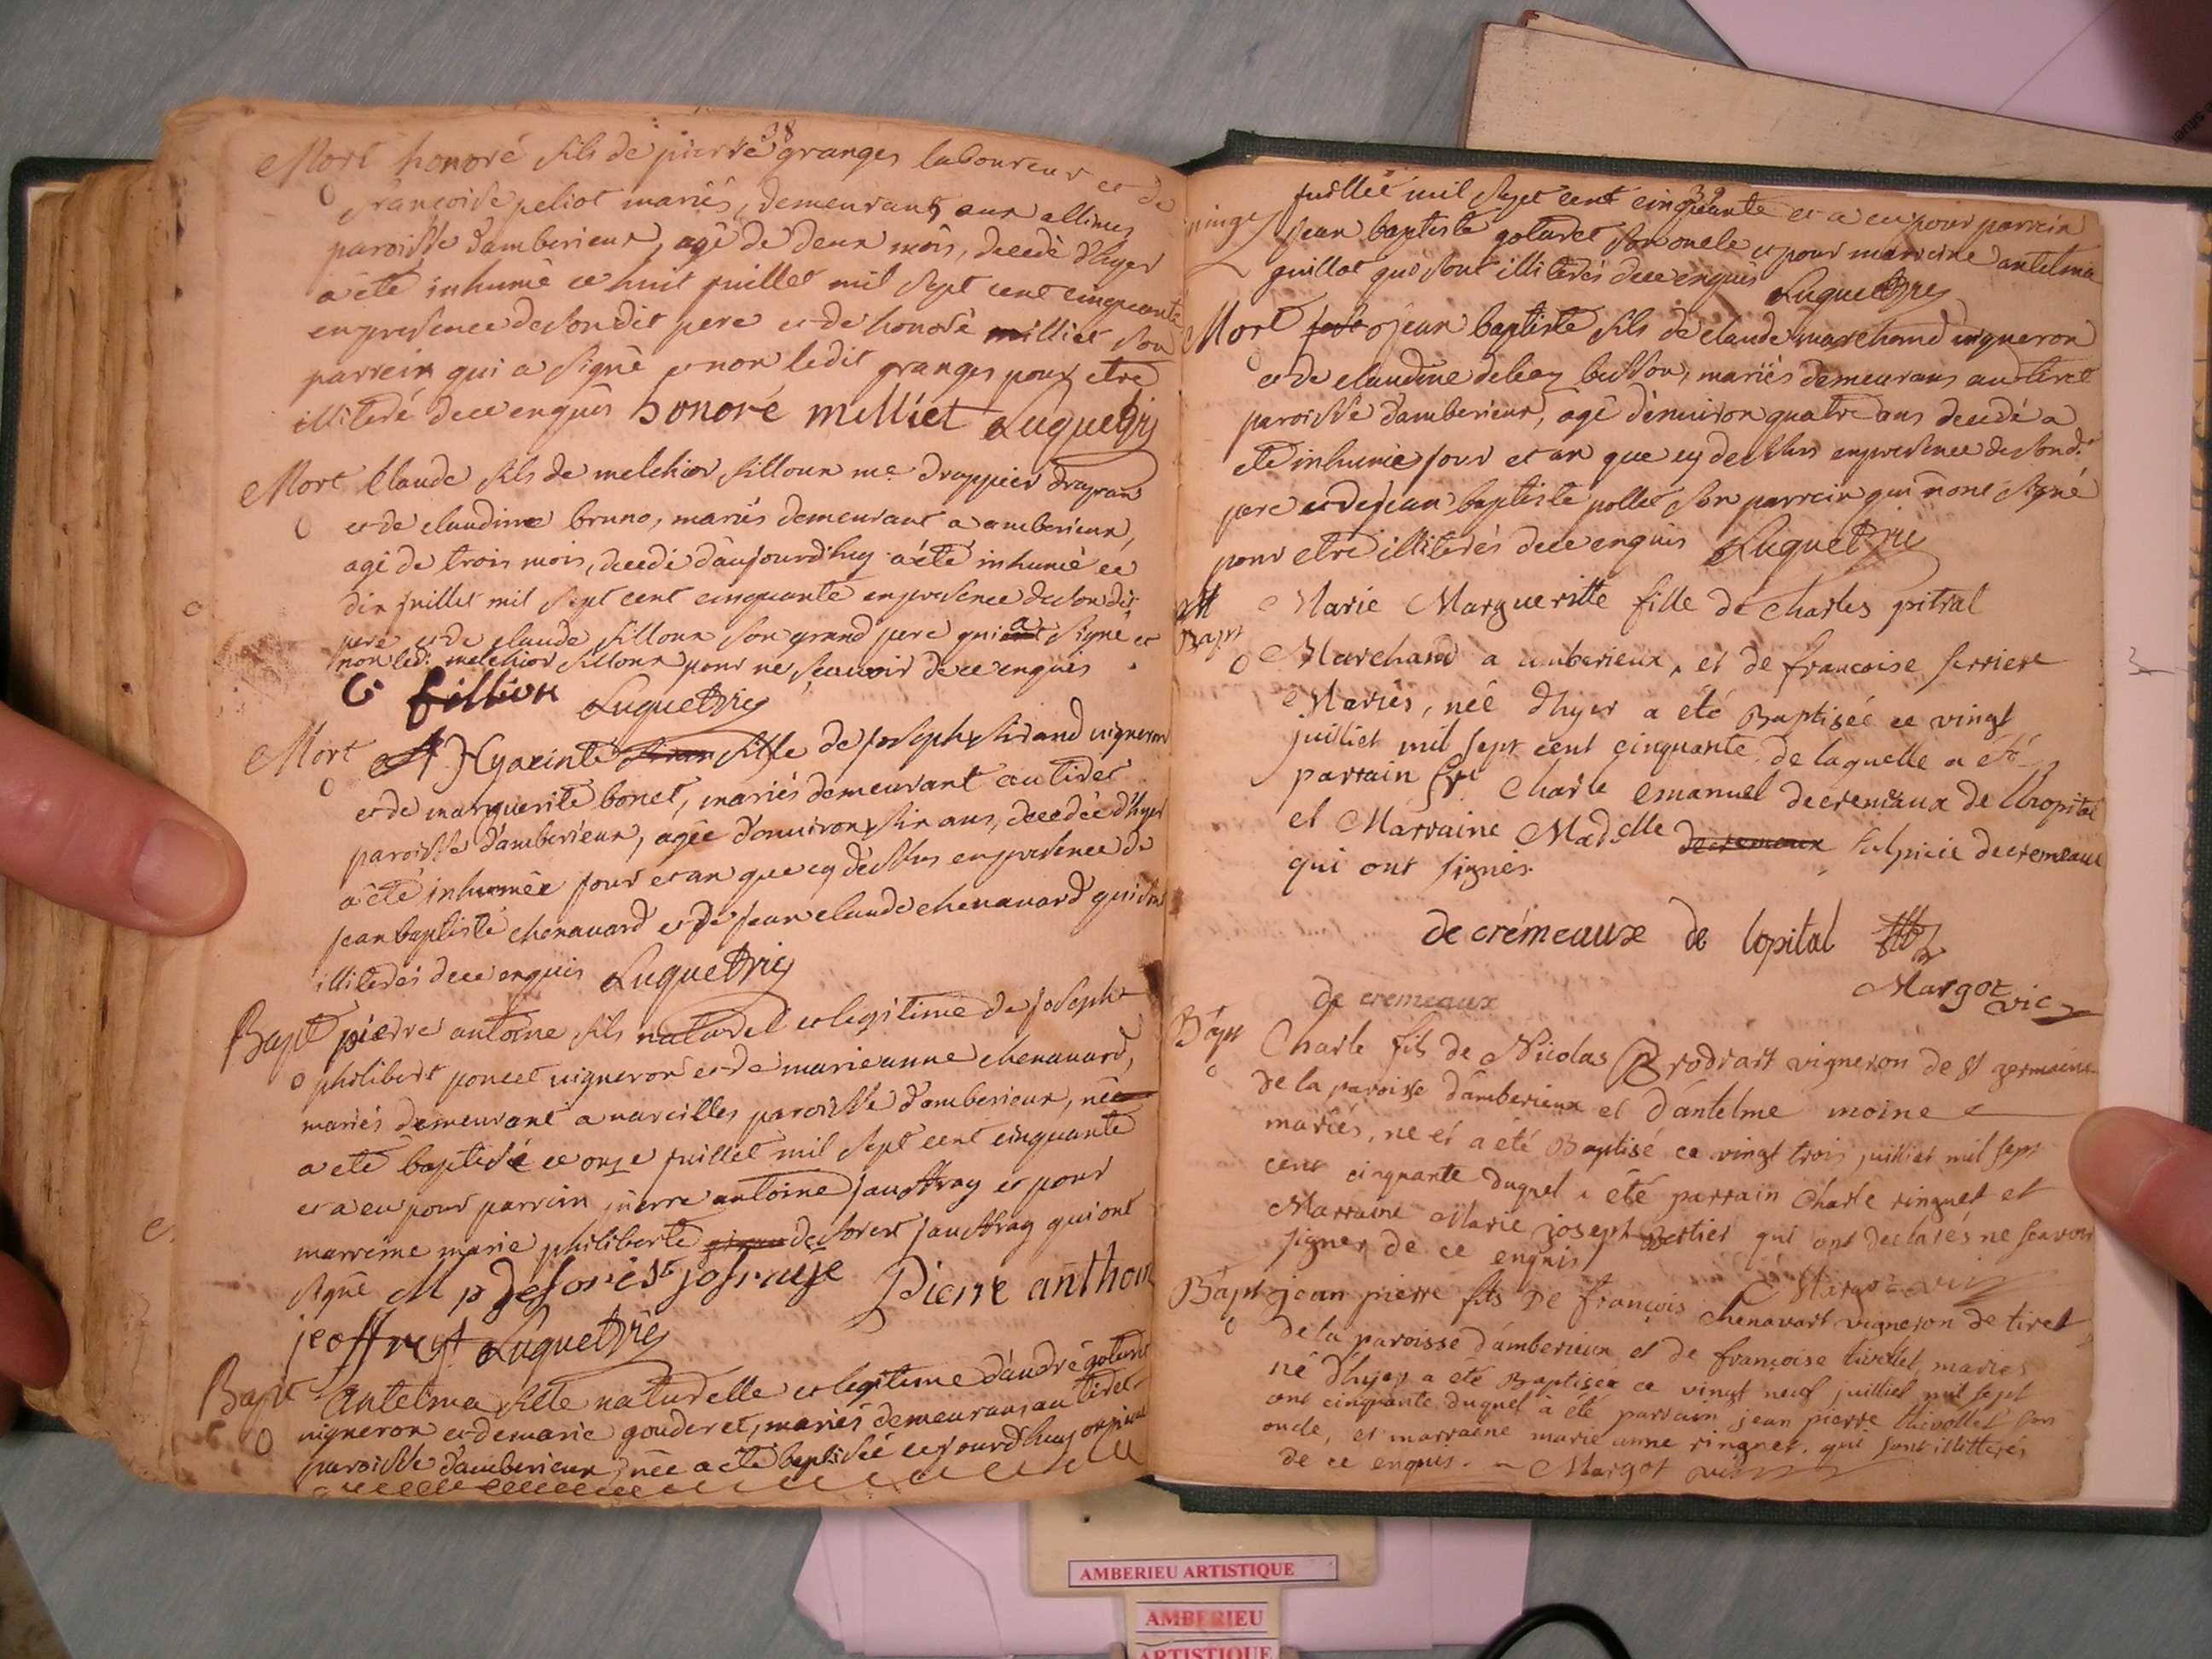 38
Mort honoré fils de pierre granges laboureur et de
françoise peliot mariés, demeurants aux allimes
paroisse damberieux, agé de deux mois, decedé d'hyer
a été inhumé ce huit juillet mil sept cent cinquante
en presence de son dit pere et de honoré milliet son
parrein qui a signé et non ledit granges pour etre
illiteré de ce enquis honoré milliet Luquet
Mort Claude fils de melchior filloux me drappier drapant
et de claudine bruno, mariés demeurant a amberieux,
agé de trois mois, decedé d'aujourdhuy a été inhumé ce
dix juillet mil sept cent cinquante en presence de son dit
pere et de claude filloux son grand pere qui a signé et
non led. melchior filloux pour ne scavoir de ce enquis
C fillioux Luquet
Mort Hyacinte fille de joseph sirand vigneron
et de marguerite bonet, mariés demeurant au tiret
paroisse d'amberieux, agée d'environ six ans, decedée d'hyer
a été inhumée jour et an que cy dessus en presence de
jean baptiste chenavard et de jean claude chenavard qui sont
illiterés de ce enquis Luquet
Bapt pierre antoine fils naturel et legitime de joseph
philibert poncet vigneron et de marieanne chenavard,
mariés demeurant a vareilles paroisse d'amberieux, né
a eté baptisé ce onze juillet mil sept cent cinquante
et a eu pour parrein pierre antoine jauffray et pour
marreine marie philiberte deforest jauffray qui ont
signé M p deforest Pierre anthoin
jeoffray Luquet
Bapt Antelma fille naturelle et legitime d'andré goturet
vigneron et de marie gouderet, mariés demeurans au tiret
paroisse d'amberieux, née a été baptisée ce jourdhuy
39
juillet mil sept cent cinquante et a eu pour parrein
jean baptiste goturet son oncle et pour marreine antelma
guillot qui sont illiterés de ce enquis Luquet
Mort jean baptiste fils de claude marchand vigneron
et de claudine buisson, mariés demeurans au tiret
paroisse d'amberieux, agé d'environ quatre ans decedé a
eté inhumé jour et an que cy dessus en presence de sond.
pere et de jean baptiste pollet son parrein qui n'ont signé
pour etre illiterés de ce enquis Luquet
Bapt Marie Margueritte fille de Charles pitral
Marchand a amberieux, et de francoise ferriere
Mariés, née d'hyer a été Baptisée ce vingt
juillet mil sept cent cinquante de laquelle a été
parrain Sr Charle emanuel decremeaux de l'hopital
et Marraine Madelle Sulpicie decremeaux
qui ont signés.
de crémeaux de lopital
Margot vic
de cremeaux
Bapt Charle fils de Nicolas Brodrart vigneron de st germain
de la paroisse d'amberieux et d'antelme moine
mariés, ne et a été Baptisé ce vingt trois juillet mil sept
cent cinquante duquel a été parrain Charle ringuet et
Marraine Marie joseph Bertier qui ont declarés ne scavoir
signer de ce enquis
Margot vic
Bapt jean pierre fils de françois chenavart vigneron de tiret
de la paroisse d'amberieux et de françoise mariés
né d'hyer a été Baptisée ce vingt neuf juillet mil sept
cent cinquante duquel a été parrain jean pierre thivollet son
oncle, et marraine marie anne ringuet. qui sont illitterés
de ce enquis. Margot vic
AMBERIEU ARTISTIQUE
AMBERIEU
ARTISTIQUE